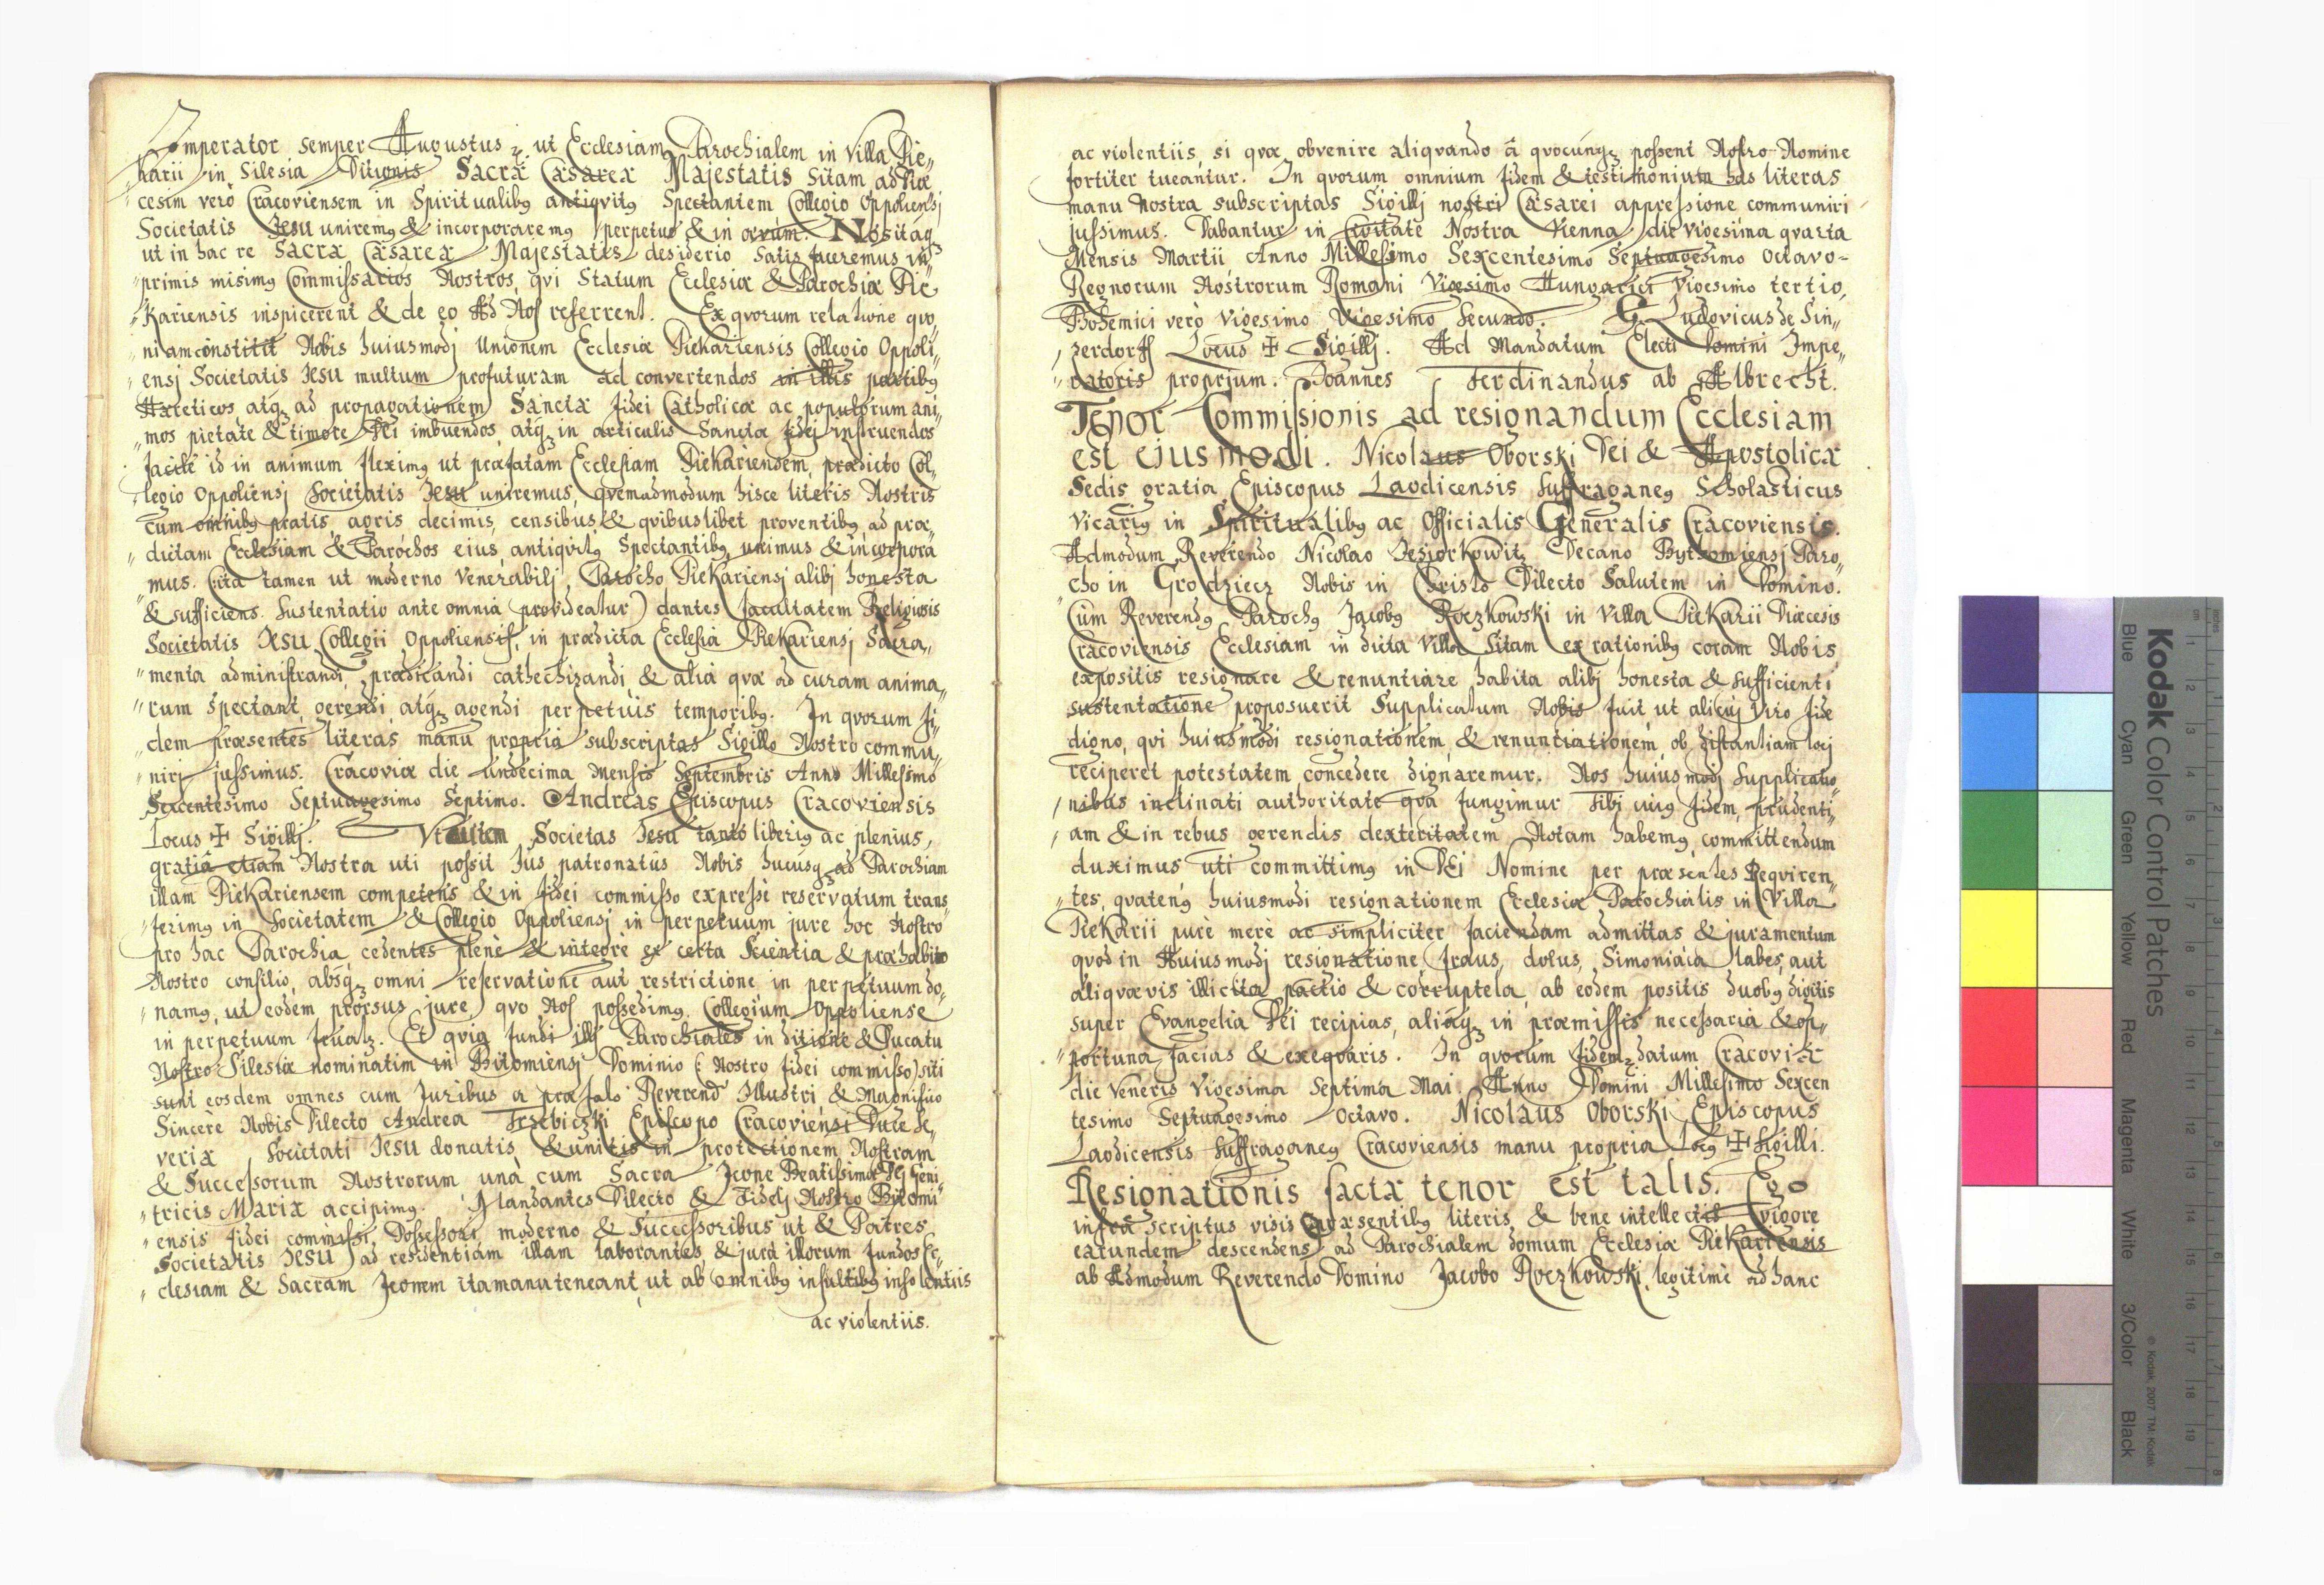 Imperator semper Augustus &c ut Ecclesiam Parochialem in Villa Pie„
„karii in Silesia Ditionis Sacræ Cæsareæ Majestatis Sitam ad Diæ
„cesim verò Cracoviensem in Spiritualibꝰ antiqvitꝰ Spectantem Collegio Oppoliensj
Societatis Jesu uniremꝰ & incorporaremꝰ perpetuò & in ævum. Nos itaqꝫ
ut in hac re Sacræ Cæsareæ Majestatis desiderio Satis faceremus in„
„primis misimꝰ Commissarios Nostros, qvi Statum Ecclesiæ & Parochiæ Pie„
„Kariensis inspicerent & de eo Ad Nos referrent. Ex qvorum relatione qvo„
„niam constitit Nobis huiusmodj Unionem Ecclesiæ Piekariensis Collegio Oppoli„
„ensj Societatis Jesu multum profuturam ad convertendos in illis partibꝰ
Hæreticos atqꝫ ad propagationem Sanctæ fidei Catholicæ ac populorum ani„
„mos pietate & timore Dei imbuendos, atqꝫ in articulis Sanctæ fidej instruendos
facilè id in animum fleximꝰ ut præfatam Ecclesiam Piekariensem, prædicto Col„
„legio Oppoliensj Societatis Jesu uniremus, qvemadmodum hisce literis Nostris
cum omnibꝰ pratis, agris, decimis, censibus & qvibuslibet proventibꝰ ad præ„
„dictam Ecclesiam & Parochos eius antiqvitꝰ Spectantibꝰ, unimus & incorpora
„mus. (ita tamen ut moderno Venerabilj Parocho Piekariensj alibj honesta
& sufficiens Sustentatio ante omnia provideatur) dantes facultatem Religiosis
Societatis Jesu Collegii Oppoliensis, in prædicta Ecclesia Piekariensj, Sacra„
„menta administrandi, prædicandi cathechizandi, & alia qvæ ad curam anima„
„rum Spectant, gerendi atqꝫ agendi perpetuis temporibꝰ. In qvorum fi„
„dem præsentes literas manu propria subscriptas Sigillo Nostro commu„
„nirj jussimus. Cracoviæ die undecima Mensis Septembris Anno Millesimo
Sexcentesimo Septuagesimo Septimo. Andreas Episcopus Cracoviensis
Locus ✝ Sigillj. Societas Jesu tantò liberiꝰ ac plenius,
gratiâ etiam Nostra uti possit Jus patronatûs Nobis hucusqꝫ ad Parochiam
illam Piekariensem competens & in fidei commisso expressè reservatum trans„
„ferimꝰ in Societatem & Collegio Oppoliensj in perpetuum jure hoc Nostro
pro hac Parochia cedentes plenè & integre ex certa Scientia & præhabito
Nostro consilio, absqꝫ omni reservatione aut restrictione in perpetuum do„
„namꝰ, ut eodem prorsus jure, qvo Nos possedimꝰ, Collegium Oppoliense
in perpetuum fruatʒ. Et qvia fundi illj Parochiales in ditione & Ducatu
Nostro Silesiæ nominatim in Bitomiensj Dominio (: Nostro fidei commisso) siti
sunt eosdem omnes cum Juribus a præfato Reverend Illustri & Magnifico
Sincerè Nobis Dilecto Andrea Trzebiczki Episcopo Cracoviensi Duce Se„
veriæ Societati Jesu donatis, & unitis in protectionem Nostram
& Successorum Nostrorum unà cum Sacra Icone Beatissimæ Dej Geni„
„tricis Mariæ accipimꝰ. Mandantes Dilecto & Fidelj Nostro Bitomi„
„ensis fidei commissi Possessori moderno & Successoribus ut & Patres
Societatis Jesu ad residentiam illam laborantes, & jura illorum fundos Ec„
„clesiam & Sacram Iconem ita manuteneant, ut ab omnibꝰ insultibꝰ insolentiis
ac violentiis.
ac violentiis, si qvæ obvenire aliqvando â qvocunqꝫ possent Nostro Nomine
fortiter tueantur. In qvorum omnium fidem & testimonium has literas
manu Nostra subscriptas Sigillj nostri Cæsarei appressione communiri
jussimus. Dabantur in Civitate Nostra Vienna die vigesima qvarta
Mensis Martii Anno Millesimo Sexcentesimo Septuagesimo Octavo-
Regnorum Nostrorum Romani Vigesimo Hungarici Vigesimo tertio,
Bohemici verò Vigesimo Vigesimo Secundo. G. Ludovicus de Sin„
„zerdorff Locus ✝ Sigillj. Ad Mandatum Electi Domini Impe„
„ratoris proprjum. Joannes Ferdinandus ab Albrecht.
Tenor Commissionis ad resignandum Ecclesiam
est ejusmodi. Nicolaus Oborski Dei & Apostolicæ
Sedis gratia Episcopus Laodicensis Suffraganeꝰ Scholasticus
Vicariꝰ in Spiritualibꝰ ac Officialis Generalis Cracoviensis.
Admodum Reverendo Nicolao Jesiorkowitz Decano Bythomiensj Paro„
„cho in Grodziecz Nobis in Christo Dilecto Salutem in Domino.
Cum Reverendꝰ Parochꝰ Jacobꝰ Roczkowski in Villa Piekarii Diæcesis
Cracoviensis Ecclesiam in dicta Villa Sitam ex rationibꝰ coram Nobis
expositis resignare & renuntiare habita alibj honesta & sufficienti
sustentatione proposuerit Supplicatum Nobis fuit ut alicuj Viro fide
digno, qvi huiusmodi resignationem & renuntiationem ob distantiam locj
reciperet potestatem concedere dignaremur. Nos huiusmodj Supplicatio„
„nibus inclinati authoritate qva fungimur Tibi cuiꝰ fidem, prudenti„
„am & in rebus gerendis dexteritatem Notam habemꝰ, committendum
duximus uti committimꝰ in Dei Nomine per præsentes Reqviren„
„tes, qvatenꝰ huiusmodi resignationem Ecclesiæ Parochialis in Villa
Piekarii purè merè ac simpliciter faciendam admittas & juramentum
qvod in Huiusmodj resignatione, fraus, dolus, Simoniaca labes, aut
aliqvævis illicita pactio & corruptela, ab eodem positis duobꝰ digitis
super Evangelia Dei recipias, aliaqꝫ in præmissis necessaria & op„
„portuna facias & exeqvaris. In qvorum fidem &c datum Cracoviæ
die Veneris Vigesima Septima Mai. Anno Domini Millesimo Sexcen
tesimo Septuagesimo Octavo. Nicolaus Oborski Episcopus
Laodicensis Suffraganeꝰ Cracoviensis manu propria Locꝰ ✝ Sigilli.
Resignationis factæ tenor est talis. Ego
infrà scriptus visis præsentibꝰ literis, & bene intellectis vigore
earundem descendens ad Parochialem domum Ecclesiæ Piekariensis
ab Admodum Reverendo Domino Jacobo Roczkowski, legitimè ad hanc
Kodak Color Control Patches
Blue Cyan Green Yellow Red Magenta White 3/Color Black
© Kodak, 2007 TM: Kodak